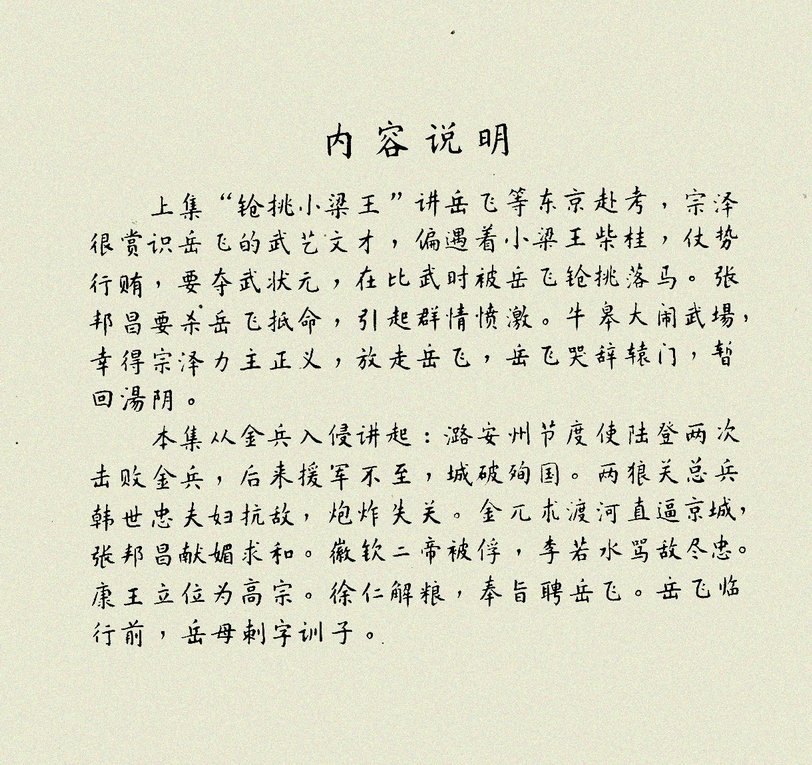 内容说明
上集“鎗挑小梁王”讲岳飞等东京赴考，宗泽
很赏识岳飞的武艺文才，偏遇着小梁王柴桂，仗势
行贿，要夺武状元，在比武时被岳飞鎗挑落马。张
邦昌要杀岳飞抵命，引起群情愤激。牛皋大闹武場，
幸得宗泽力主正义，放走岳飞，岳飞哭辞辕门，暂
回湯阴。
本集从金兵入侵讲起：潞安州节度使陆登两次
击败金兵，后来援军不至，城破殉国。两狼关总兵
韩世忠夫妇抗敌，炮炸失关。金兀朮渡河直逼京城，
张邦昌献媚求和。徽钦二帝被俘，李若水骂敌尽忠。
康王立位为高宗。徐仁解粮，奉旨聘岳飞。岳飞临
行前，岳母刺字训子。